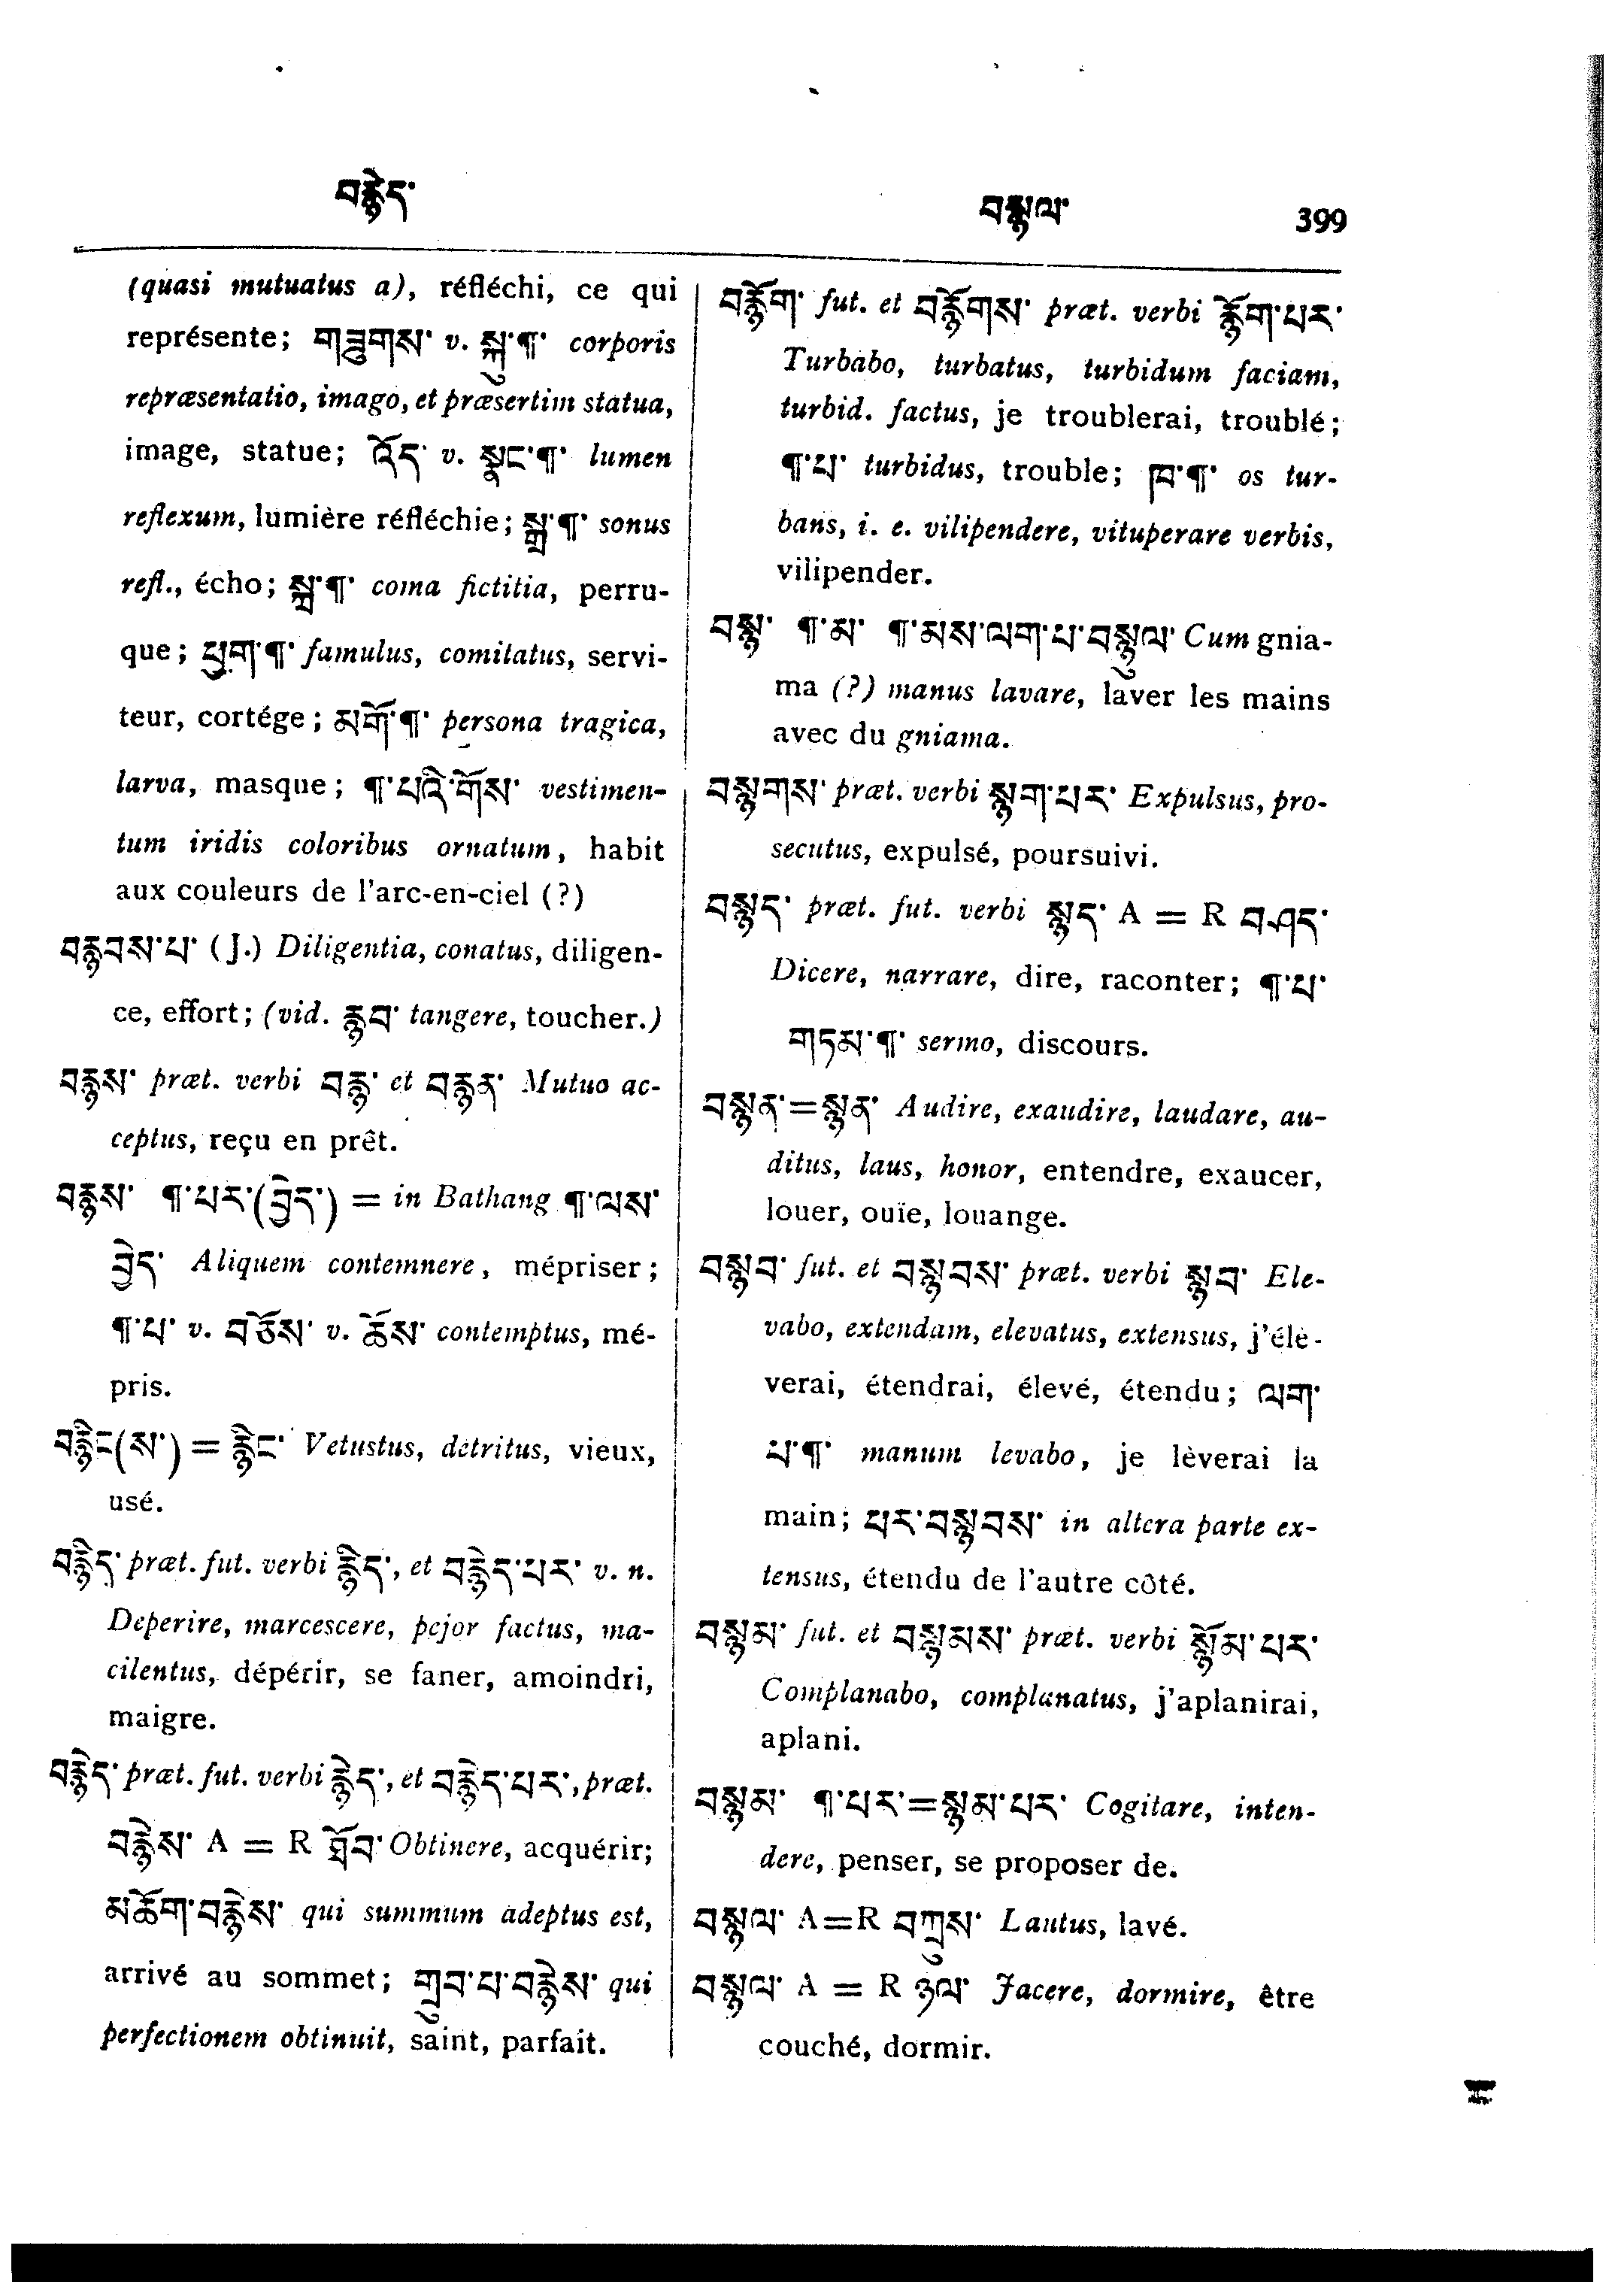 བརྙེད་
བསྙལ་
399
(quasi mutuatus a), réfléchi, ce qui
représente; གཟུགས་ v. སྐུ་¶་ corporis
repræsentatio, imago, et præsertim statua,
image, statue; འོད་ v. སྣང་¶་ lumen
reflexum, lumière réfléchie; སྒྲ་¶་ sonus
refl., écho; སྐྲ་¶་ coma fictitia, perru-
que; ཕྱག་¶་ famulus, comitatus, servi-
teur, cortége; མགོ་¶་ persona tragica,
larva, masque; ¶་པའི་གོས་ vestimen-
tum iridis coloribus ornatum, habit
aux couleurs de l'arc-en-ciel (?)
བརྙབས་པ་ (J.) Diligentia, conatus, diligen-
ce, effort; (vid. རྙབ་ tangere, toucher.)
བརྙས་ præt. verbi བརྙ་ et བརྙན་ Mutuo ac-
ceptus, reçu en prêt.
བརྙས་ ¶་པར་(བྱེད་) = in Bathang ¶་ལས་
བྱེད་ Aliquem contemnere, mépriser;
¶་པ་ v. བཅོས་ v. ཆོས་ contemptus, mé-
pris.
བརྙིང(ས་) = རྙིང་ Vetustus, detritus, vieux,
usé.
བརྙིད་ præt. fut. verbi རྙིད་, et བརྙེད་པར་ v. n.
Deperire, marcescere, pejor factus, ma-
cilentus, dépérir, se faner, amoindri,
maigre.
བརྙེད་ præt. fut. verbi རྙེད་, et བརྙེད་པར་, præt.
བརྙེས་ A = R ཐོབ་ Obtinere, acquérir;
མཆོག་བརྙེས་ qui summum adeptus est,
arrivé au sommet; གྲུབ་པ་བརྙེས་ qui
perfectionem obtinuit, saint, parfait.
བརྙོག་ fut. et བརྙོགས་ præt. verbi རྙོག་པར་
Turbabo, turbatus, turbidum faciam,
turbid. factus, je troublerai, troublé;
¶་པ་ turbidus, trouble; ཁ་¶་ os tur-
bans, i. e. vilipendere, vituperare verbis,
vilipender.
བསྙ་ ¶་མ་ ¶་མས་ལག་པ་བསྙུལ་ Cum gnia-
ma (?) manus lavare, laver les mains
avec du gniama.
བསྙགས་ præt. verbi སྙག་པར་ Expulsus, pro-
secutus, expulsé, poursuivi.
བསྙད་ præt. fut. verbi སྙད་ A = R བཤད་
Dicere, narrare, dire, raconter; ¶་པ་
གཏམ་¶་ sermo, discours.
བསྙན་=སྙན་ Audire, exaudire, laudare, au-
ditus, laus, honor, entendre, exaucer,
louer, ouïe, louange.
བསྙབ་ fut. et བསྙབས་ præt. verbi སྙབ་ Ele-
vabo, extendam, elevatus, extensus, j'élè-
verai, étendrai, élevé, étendu; ལག་
པ་¶་ manum levabo, je lèverai la
main; པར་བསྙབས་ in altera parte ex-
tensus, étendu de l'autre côté.
བསྙམ་ fut. et བསྙམས་ præt. verbi སྙོམ་པར་
Complanabo, complanatus, j'aplanirai,
aplani.
བསྙམ་ ¶་པར་=སྙམ་པར་ Cogitare, inten-
dere, penser, se proposer de.
བསྙལ་ A=R བཀྲུས་ Lautus, lavé.
བསྙལ་ A = R ཉལ་ Jacere, dormire, être
couché, dormir.